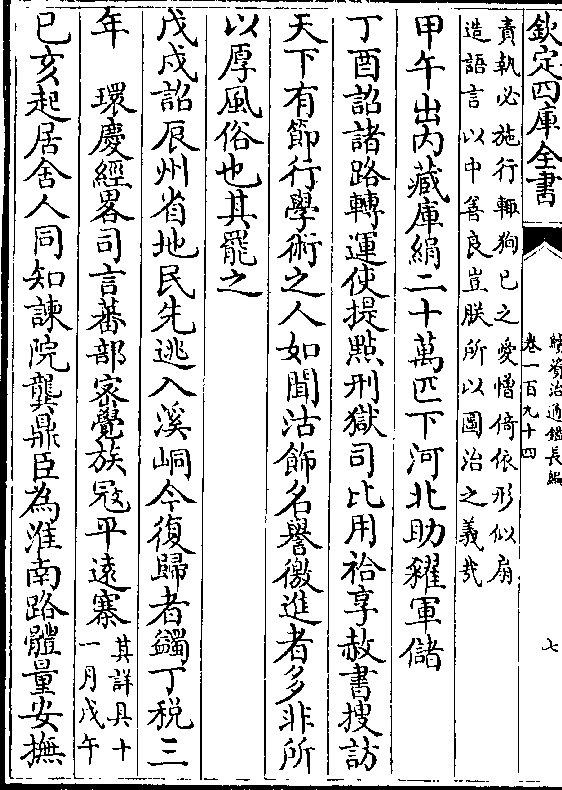 欽定四庫全書
續資治通鑑長編
卷一百九十四
七
責執必施行輙狥已之愛憎倚依形似扇
造語言以中善良豈朕所以圖治之義㢤
甲午出内藏庫絹二十萬匹下河北助糴軍儲
丁酉詔諸路轉運使提㸃刑獄司比用祫享赦書搜訪
天下有節行學術之人如聞沽飾名譽徼進者多非所
以厚風俗也其罷之
戊戌詔辰州省地民先逃入溪峒今復歸者蠲丁税三
年　環慶經畧司言蕃部宻覺族冦平逺寨其詳具十一月戊午
己亥起居舍人同知諫院龔鼎臣為淮南路體量安撫